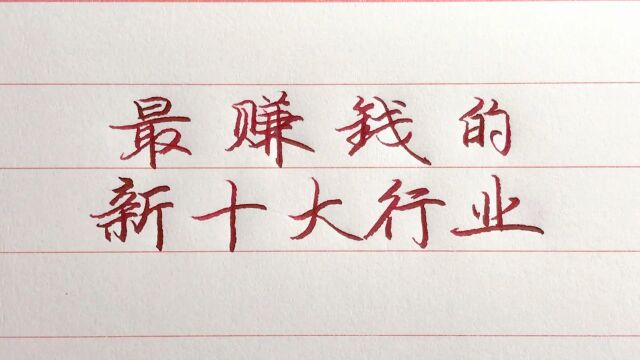 最赚錢的
新十大行业